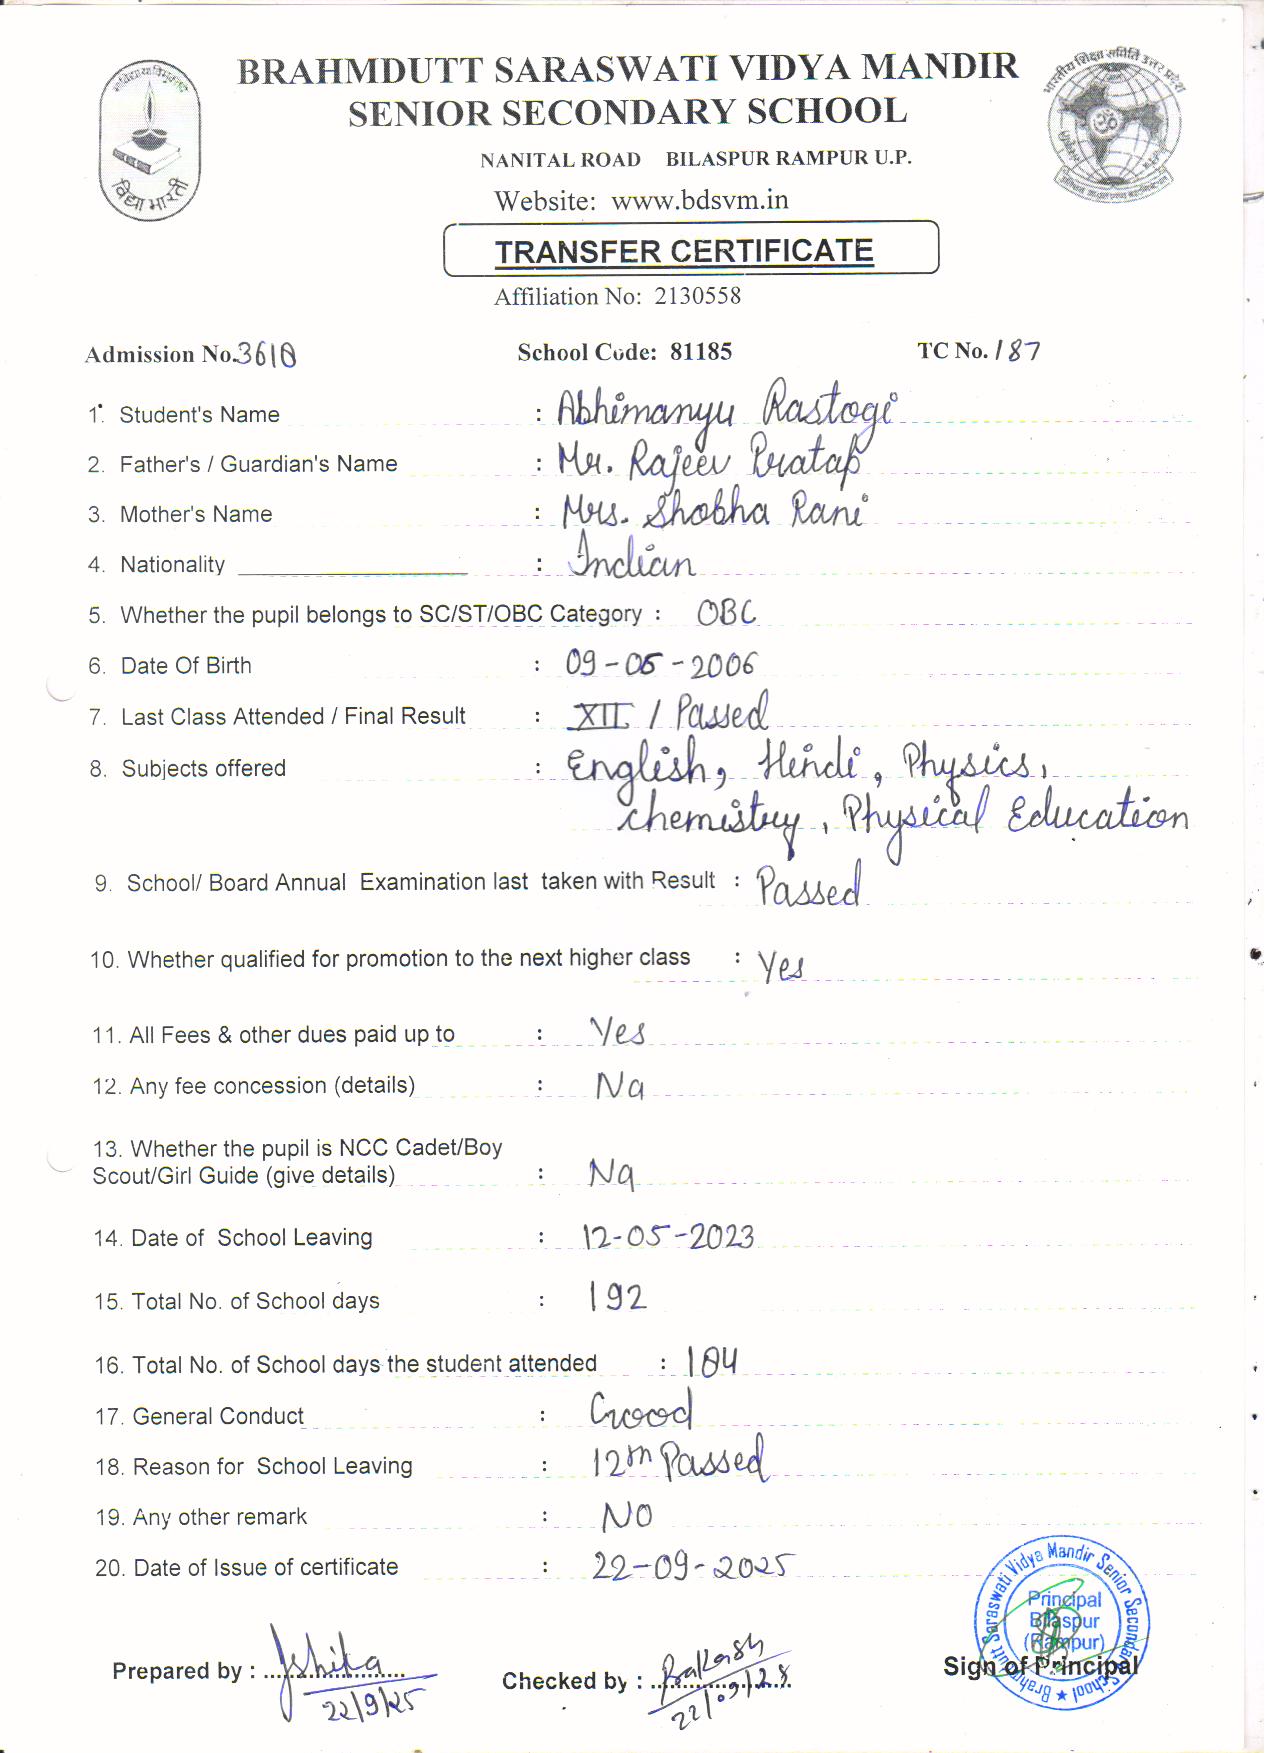 BRAHMDUTT SARASWATI VIDYA MANDIR
SENIOR SECONDARY SCHOOL
NANITAL ROAD BILASPUR RAMPUR U.P.
विद्या भारती
Website: www.bdsvm.in
TRANSFER CERTIFICATE
Affiliation No: 2130558
Admission No. 3618 School Code: 81185 TC No. 187
1. Student's Name : Abhimanyu Rastogi
2. Father's / Guardian's Name : Mr. Rajeev Pratap
3. Mother's Name : Mrs. Shobha Rani
4. Nationality : Indian
5. Whether the pupil belongs to SC/ST/OBC Category : OBC
6. Date Of Birth : 09-05-2006
7. Last Class Attended / Final Result : XII / Passed
8. Subjects offered : English, Hindi, Physics,
chemistry, Physical Education
9. School/ Board Annual Examination last taken with Result : Passed
10. Whether qualified for promotion to the next higher class : Yes
11. All Fees & other dues paid up to : Yes
12. Any fee concession (details) : Na
13. Whether the pupil is NCC Cadet/Boy
Scout/Girl Guide (give details) : Na
14. Date of School Leaving : 12-05-2023
15. Total No. of School days : 192
16. Total No. of School days the student attended : 184
17. General Conduct : Good
18. Reason for School Leaving : 12th Passed
19. Any other remark : NO
20. Date of Issue of certificate : 22-09-2025
Brahmdutt Saraswati Vidya Mandir Senior Secondary School ★
Principal
Bilaspur
(Rampur)
Prepared by : Ishika Checked by : Prakash Sign of Principal
22/9/25 22/09/25